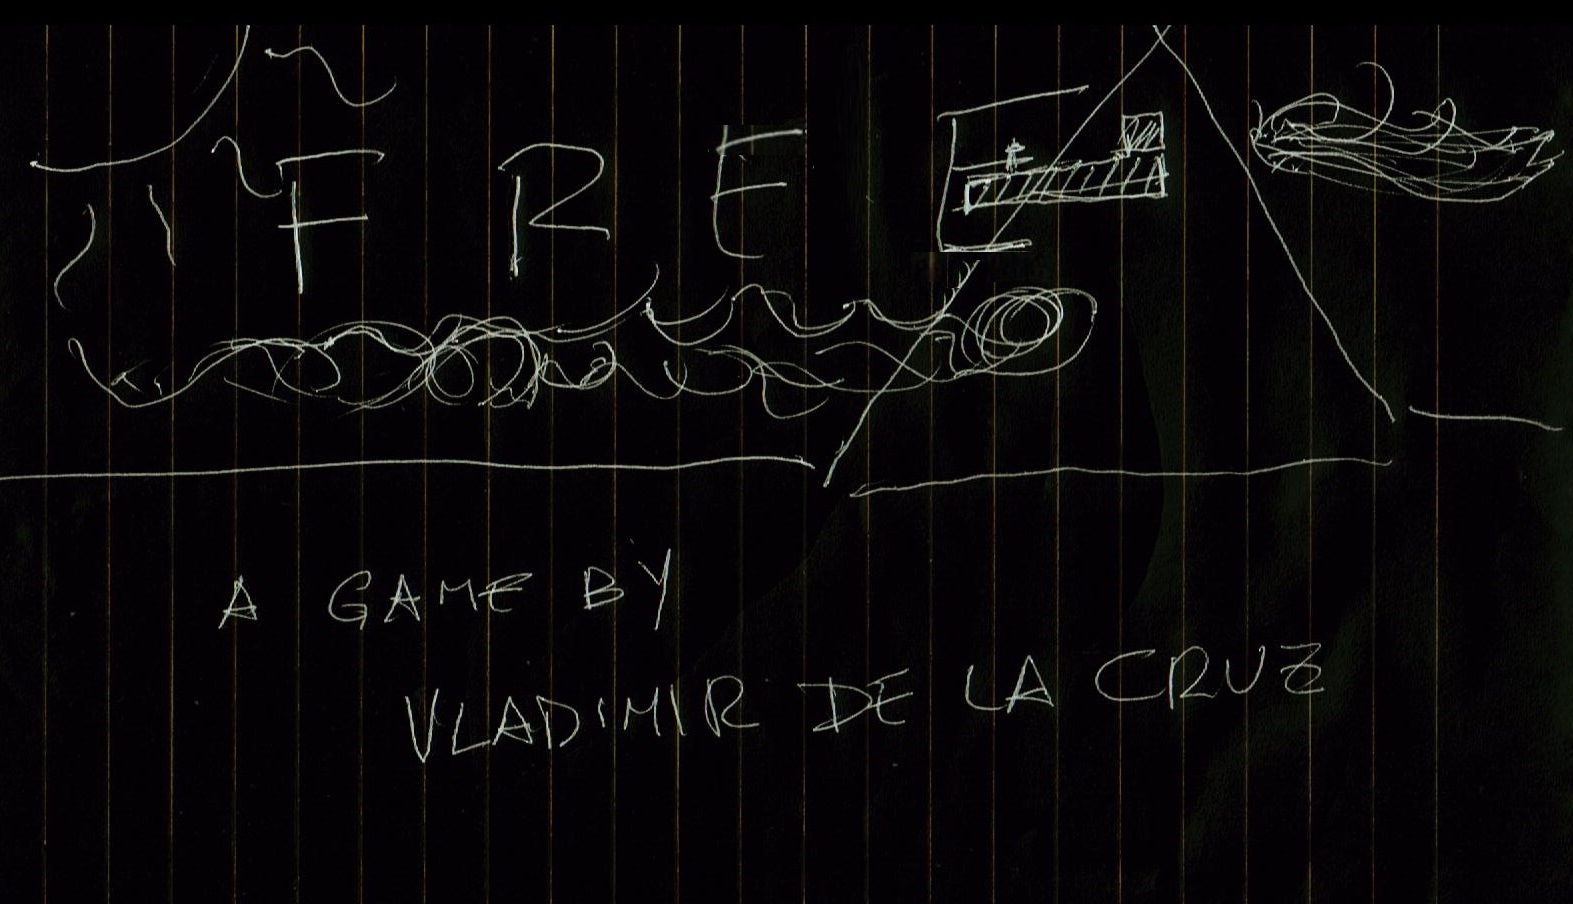 FREE
A GAME BY
VLADIMIR DE LA CRUZ